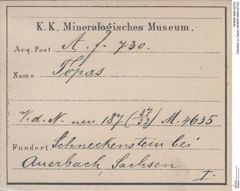 K. K. Mineralogisches Museum.
Acq. Post A. f. 730.
Name Topas
V. d. N. neu 187 (37/33) M. 4635
Fundort Schneckenstein bei
Auerbach, Sachsen
I.